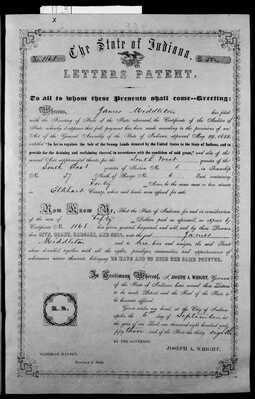 The State of Indiana.
No. 1168
LETTERS PATENT.
To all to whom these Presents shall come—Greeting:
Whereas, James Middleton has filed
with the Secretary of State of the State aforesaid, the Certificate of the Auditor of
State whereby it appears that full payment has been made according to the provisions of an
Act of the General Assembly of the State of Indiana, approved May 29, 1852,
entitled "An Act to regulate the sale of the Swamp Lands donated by the United States to the State of Indiana, and to
provide for the draining and reclaiming thereof, in accordance with the condition of said grant,"
South West quarter of the
South East quarter of Section No. 6 in Township
No. 37 North of Range No. 6
Forty Acres
Elkhart County
Now Know Ye, That the State of Indiana, for and in consideration
of the sum of Fifty Dollars paid as aforesaid, as appears by
Certificate No. 1168
DOES GIVE, GRANT, BARGAIN, SELL, unto the said James
Middleton and to his heirs and assigns, the said Tract
above described, together with all the rights, privileges, immunities, and appurtenances of
whatsoever nature thereunto belonging TO HAVE AND TO HOLD THE SAME FOREVER.
In Testimony Whereof, I, JOSEPH A. WRIGHT, Governor
of the State of Indiana, have caused these Letters
to be made Patent, and the Seal of the State to
be hereunto affixed.
Given under my hand, at the City of Indianapolis,
the day of September in
the year of our Lord one thousand eight hundred and
fifty three
BY THE GOVERNOR,
JOSEPH A. WRIGHT.
Secretary of State.